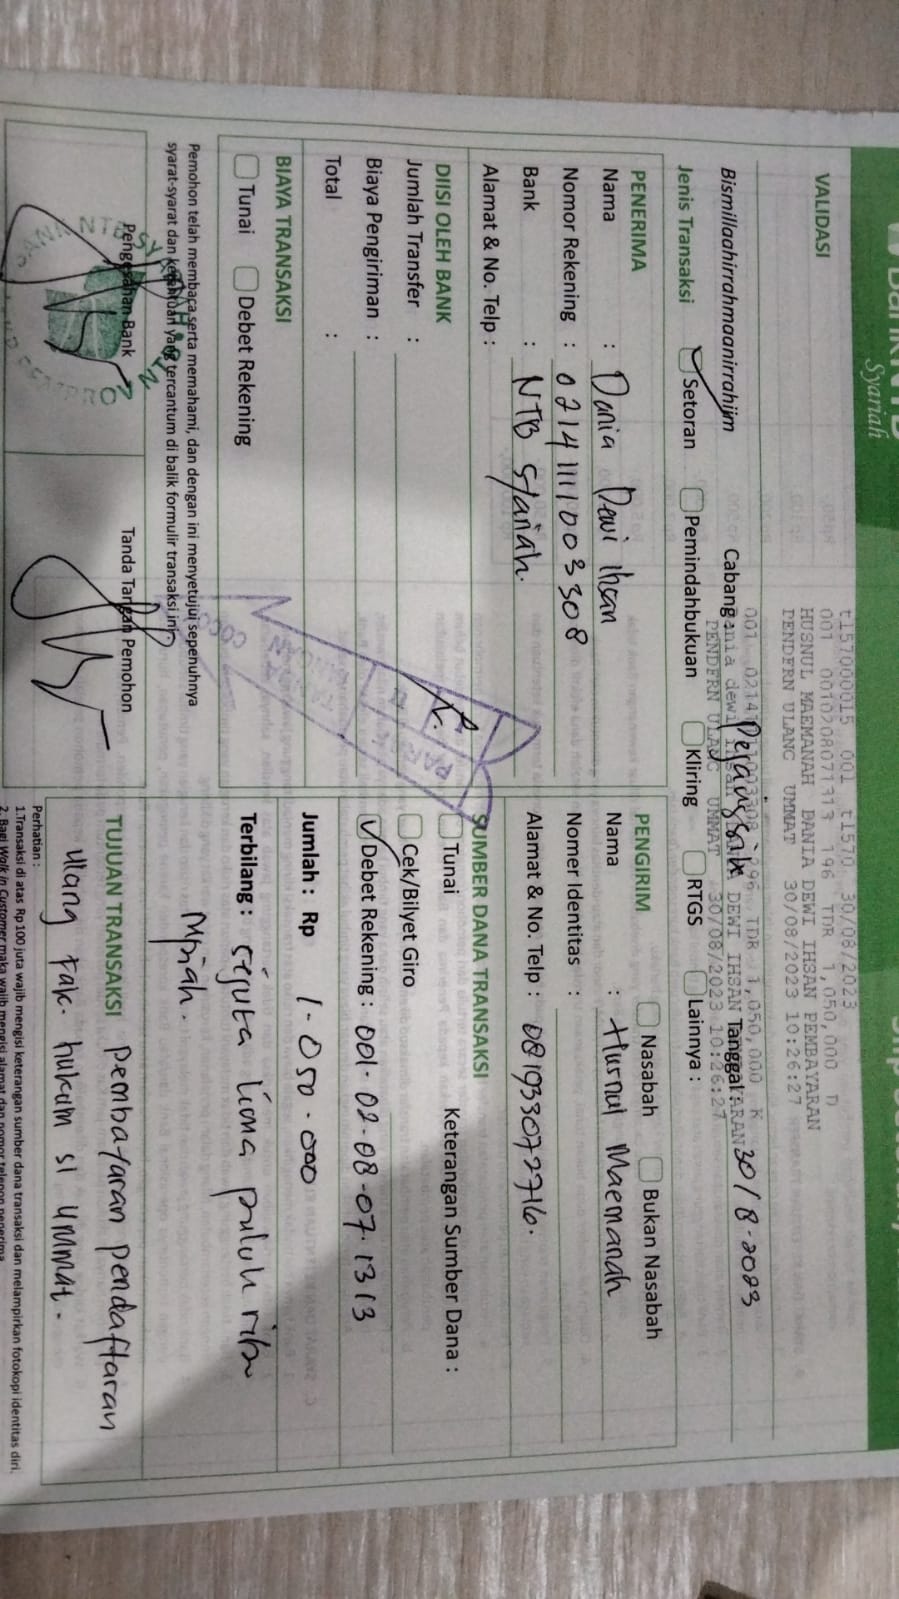 Bank NTB
Syariah
VALIDASI
t157000015 001 t1570 30/08/2023
001 0010208071313 196 TDR 1,050,000 D
HUSNUL MAEMANAH DANIA DEWI IHSAN PEMBAYARAN
PENDFRN ULANG UMMAT 30/08/2023 10:26:27
196 TDR 1,050,000 K
DEWI IHSAN
PENDFRN ULANG UMMAT 30/08/2023 10:26:27
Bismillaahirrahmaanirrahijm
Cabang : Pejanggik
Tanggal : 30/8-2023
Jenis Transaksi
Setoran
Pemindahbukuan
Kliring
RTGS
Lainnya :
PENERIMA
Nama : Dania Dewi Ihsan
Nomor Rekening : 0214111003308
Bank : NTB Syariah.
Alamat & No. Telp :
PENGIRIM
Nasabah
Bukan Nasabah
Nama : Husnul Maemanah
Nomer Identitas :
Alamat & No. Telp : 081933072716.
DIISI OLEH BANK
Jumlah Transfer :
Biaya Pengiriman :
Total :
SUMBER DANA TRANSAKSI
Tunai
Keterangan Sumber Dana :
Cek/Bilyet Giro
Debet Rekening : 001.02.08.07.1313
BIAYA TRANSAKSI
Tunai
Debet Rekening
Jumlah : Rp 1.050.000
Terbilang : sejuta lima puluh ribu
rupiah.
Pemohon telah membaca serta memahami, dan dengan ini menyetujui sepenuhnya
syarat-syarat dan ketentuan yang tercantum di balik formulir transaksi ini
Pengesahan Bank
Tanda Tangan Pemohon
TUJUAN TRANSAKSI pembayaran pendaftaran
ulang Fak. hukum S1 UMMAT.
Perhatian :
1.Transaksi di atas Rp 100 juta wajib mengisi keterangan sumber dana transaksi dan melampirkan fotokopi identitas diri.
2. Bagi Walk in Customer maka wajib mengisi alamat dan nomor telepon penerima